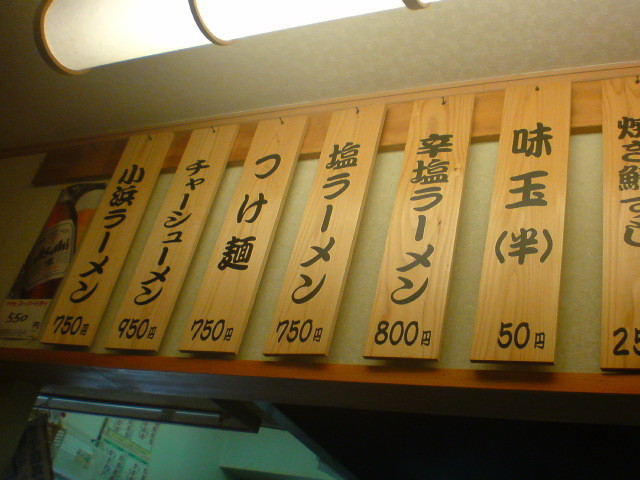 小浜ラーメン
750円
チャーシューメン
950円
つけ麺
750円
塩ラーメン
750円
辛塩ラーメン
800円
味玉
(半)
50円
焼き鯖ずし
25
Asahi
550円